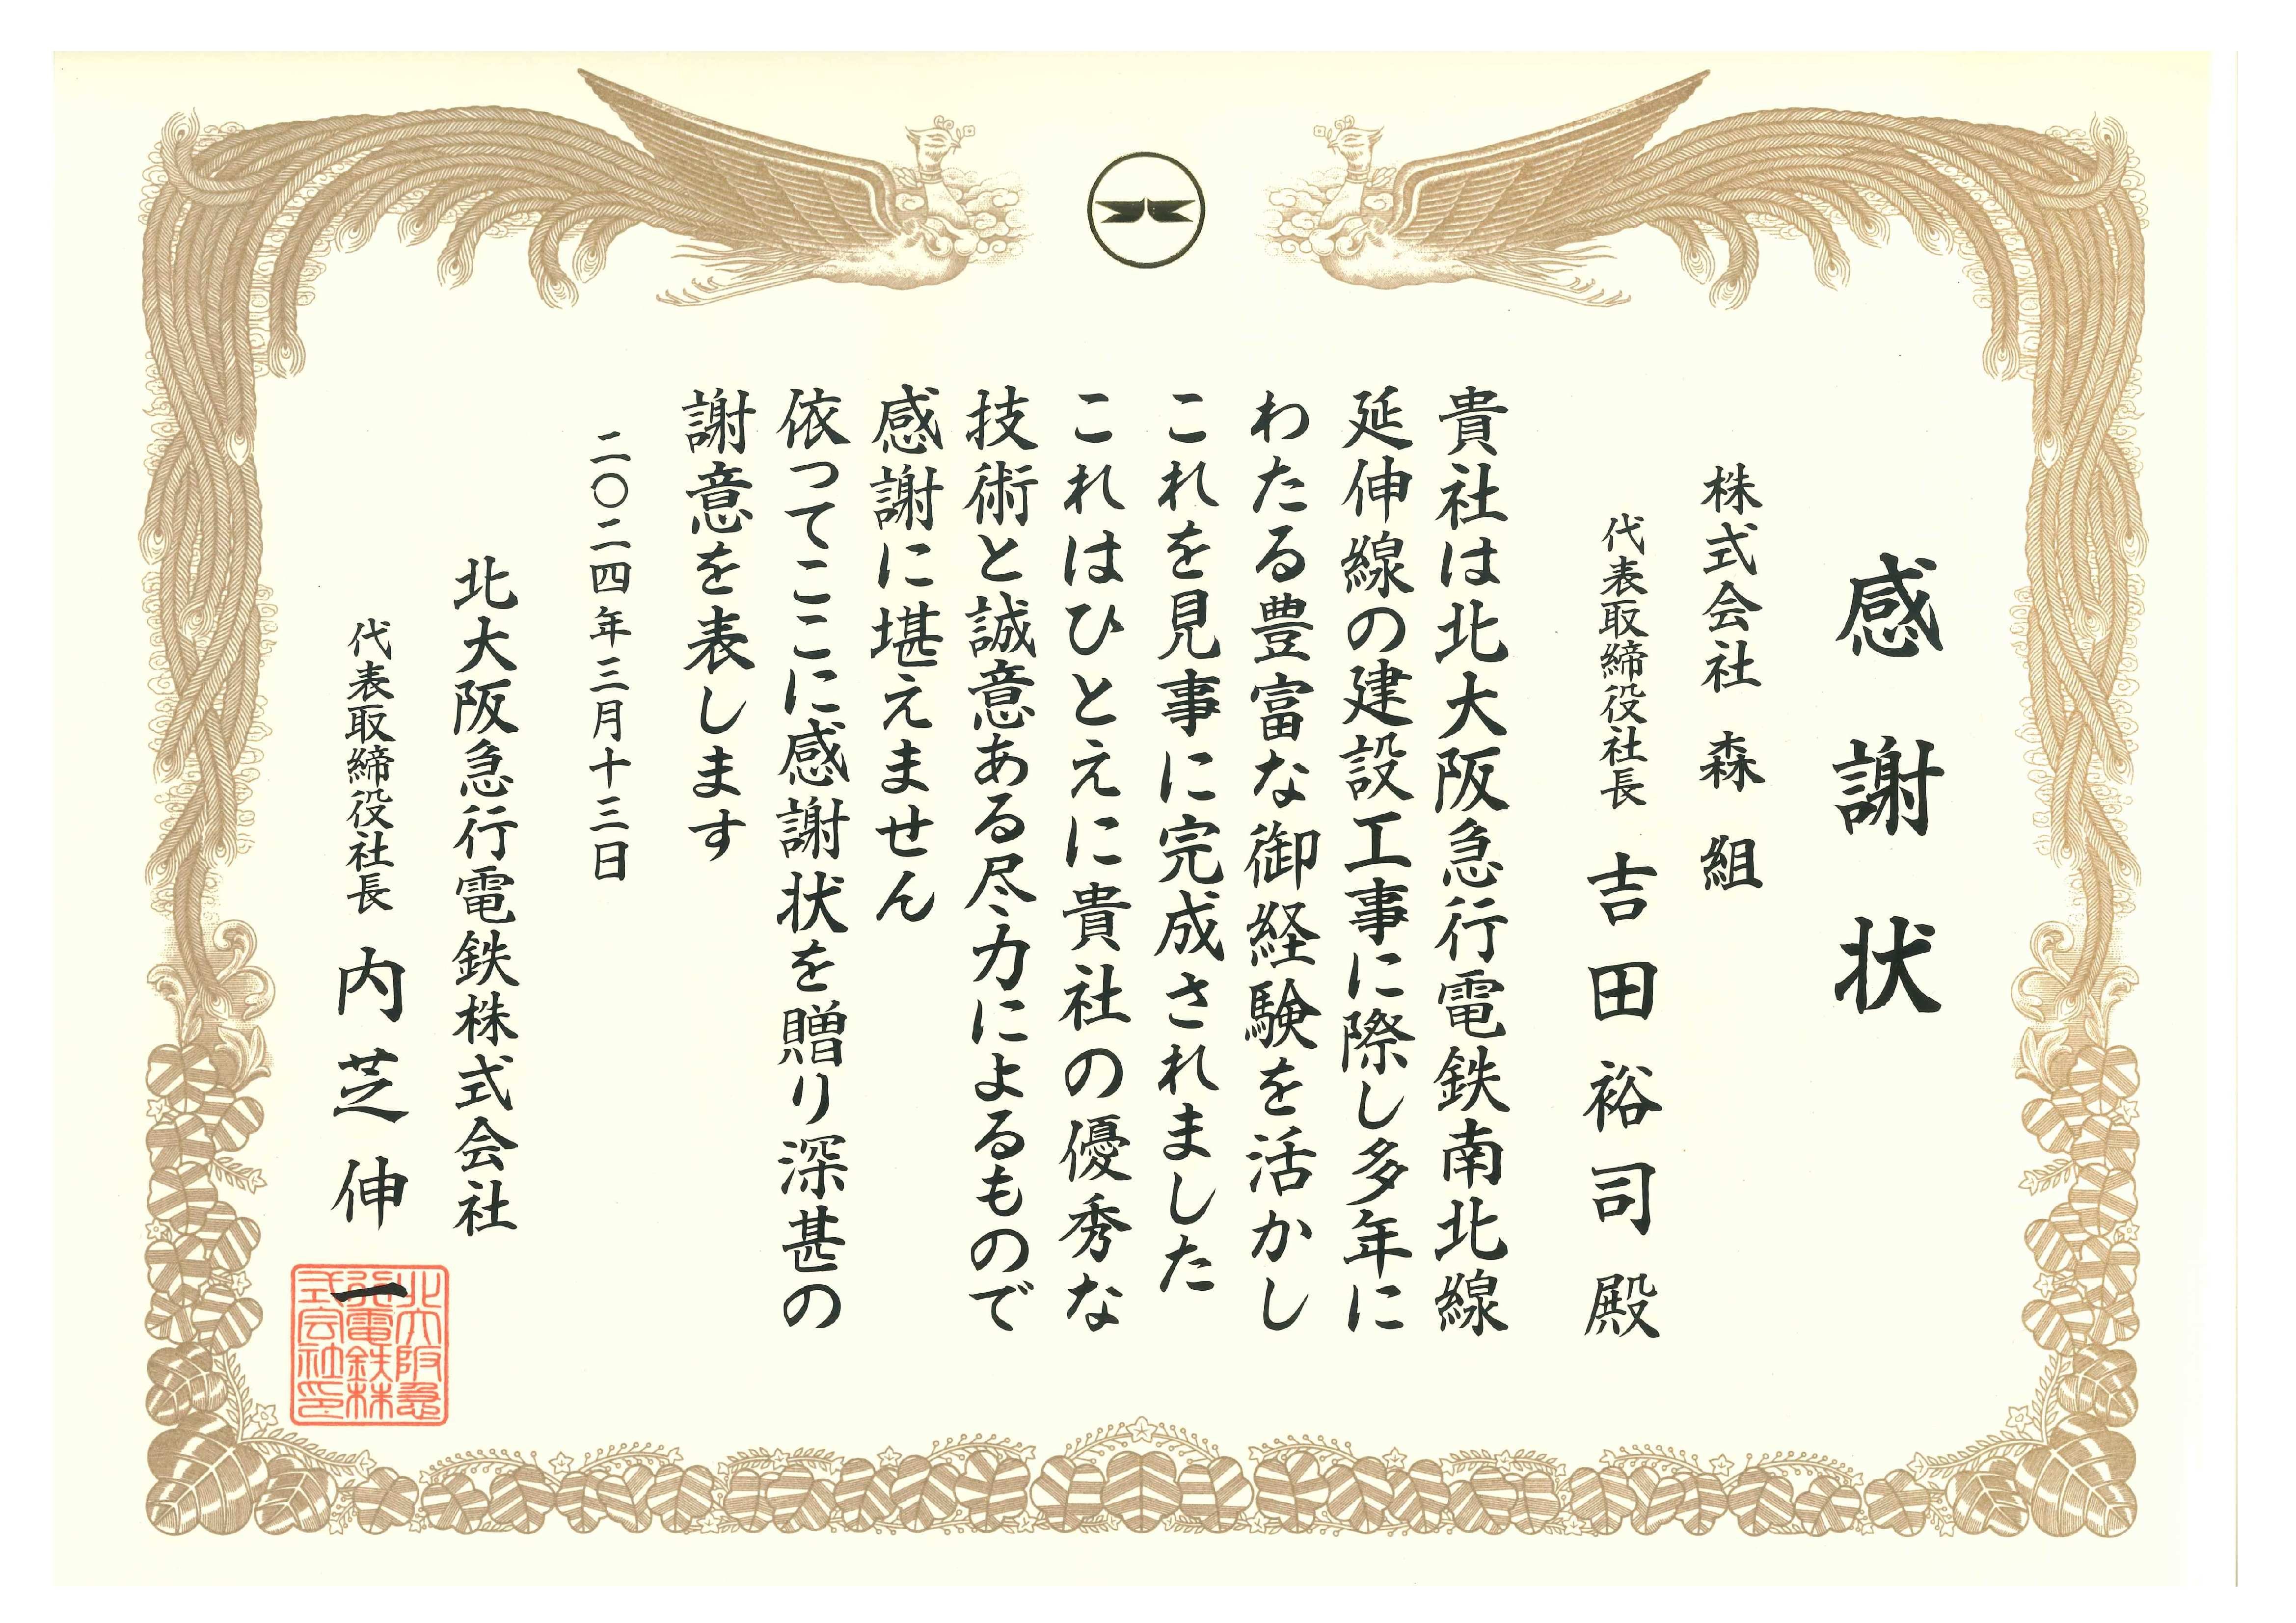 感謝状
株式会社 森組
代表取締役社長 吉田裕司殿
貴社は北大阪急行電鉄南北線
延伸線の建設工事に際し多年に
わたる豊富な御経験を活かし
これを見事に完成されました
これはひとえに貴社の優秀な
技術と誠意ある尽力によるもので
感謝に堪えません
依ってここに感謝状を贈り深甚の
謝意を表します
二〇二四年三月十三日
北大阪急行電鉄株式会社
代表取締役社長 内芝伸一
北大阪急
行電鉄株
式会社印